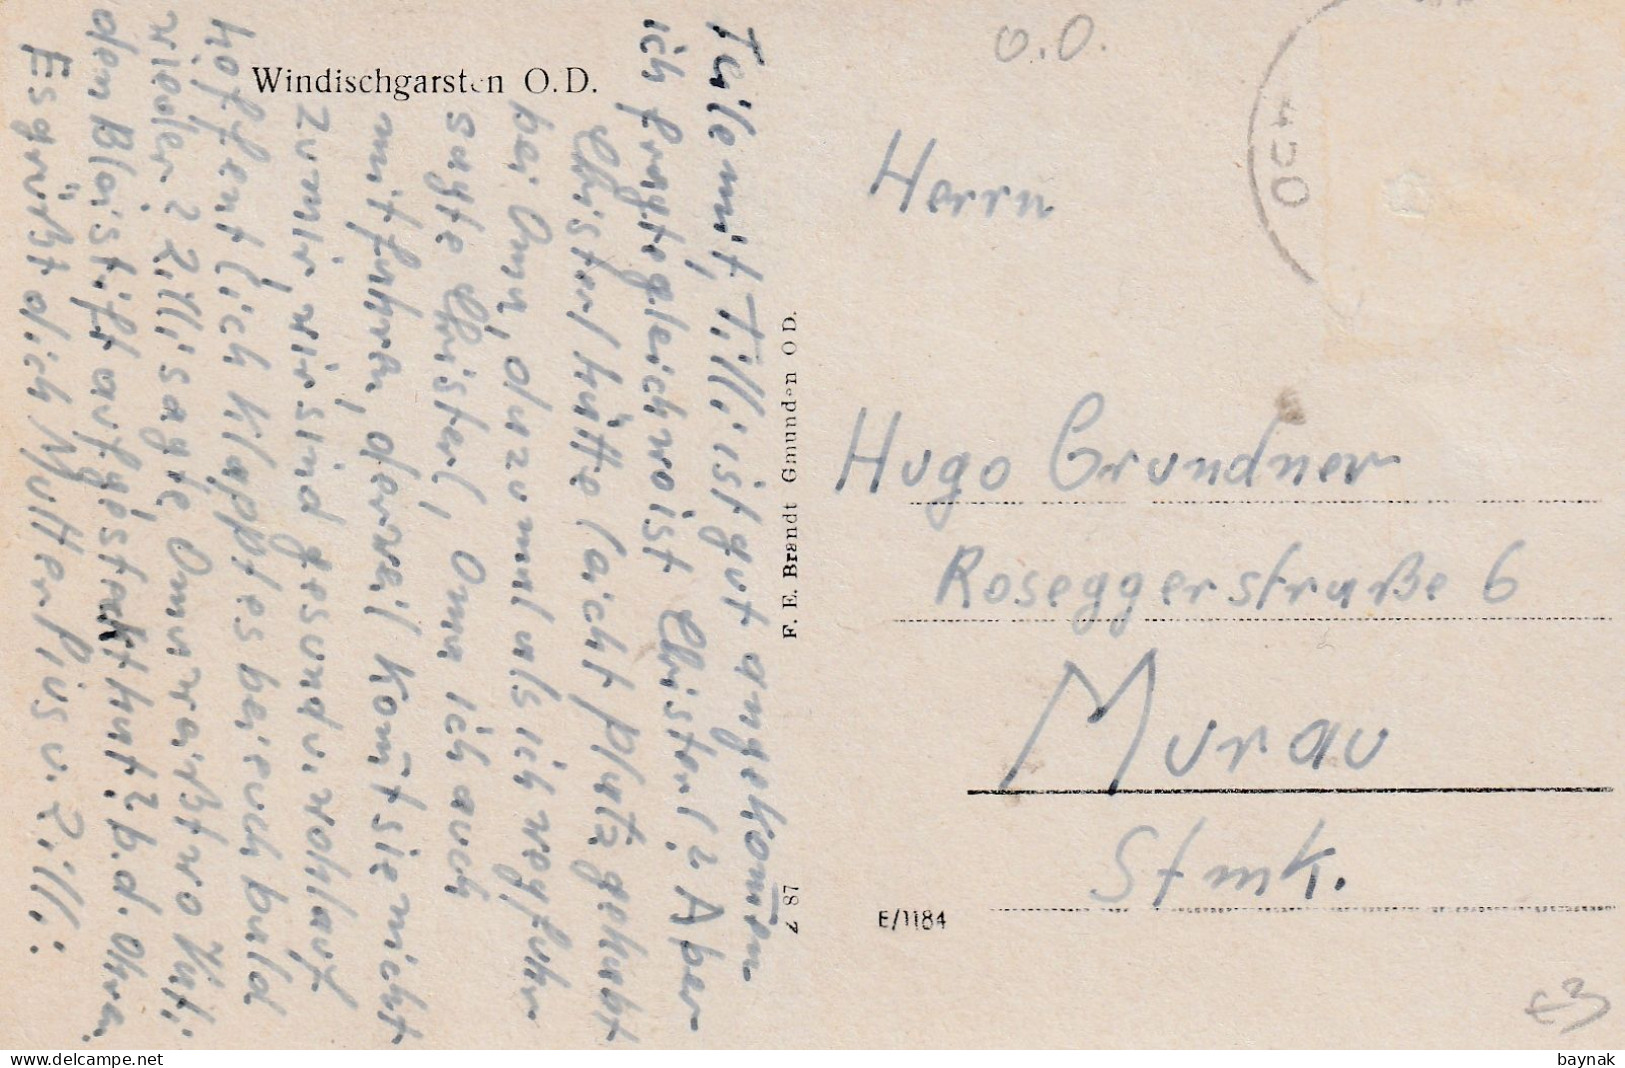 Windischgarsten O.D.
Teile mit, Tilli ist gut angekom̄en
ich fragte gleich wo ist Christerl? Aber
Christerl hätte leicht Platz gehabt
bei Oma, dazumal als ich wegfuhr
sagte Christerl, Oma ich auch
mitfahren, derweil kom̄t sie nicht
zu mir, wir sind gesund u. wohlauf
hoffentlich klappt es bei euch bald
wieder? Zilli sagte Oma weißt wo Vati
den Bleistift aufgesteckt hat? b. d. Ohren
Es grüßt dich Mutter Pius u. Zilli:
F. E. Brandt Gmunden O D.
Z 87
O.D.
Herrn
Hugo Grundner
Roseggerstraße 6
Murau
Stmk.
E/1184
€3
baynak
delcampe.net